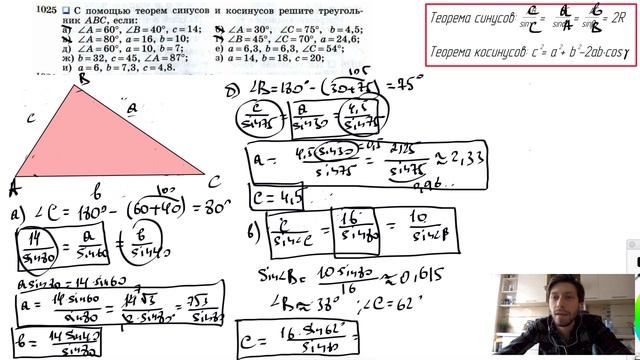 1025 С помощью теорем синусов и косинусов решите треуголь-
ник ABC, если:
а) ∠A=60°, ∠B=40°, c=14; б) ∠A=30°, ∠C=75°, b=4,5;
в) ∠A=80°, a=16, b=10; г) ∠B=45°, ∠C=70°, a=24,6;
д) ∠A=60°, a=10, b=7; е) a=6,3, b=6,3, ∠C=54°;
ж) b=32, c=45, ∠A=87°; з) a=14, b=18, c=20;
и) a=6, b=7,3, c=4,8.
Теорема синусов: c/sin C = a/sin A = b/sin B = 2R
Теорема косинусов: c²=a²+b²-2ab·cosγ
B
c a
A b C
а) ∠C=180°-(60+40)=80°
100
14/sin80 = a/sin60 = b/sin40
a sin80=14·sin60
a = 14 sin60/sin80 = 14√3/2·sin80 = 7√3/sin80
b = 14 sin40/sin80
б) ∠B=180°-(30+75)=75°
105
c/sin75 = a/sin30 = 4,5/sin75
a = 4,5 sin30/sin75 = 2,25/sin75 ≈ 2,33
=0,5
0,96...
c=4,5
в) c/sin∠C = 16/sin80 = 10/sin∠B
sin∠B = 10 sin80/16 ≈ 0,615
∠B≈38° ; ∠C=62°
c = 16·sin62°/sin80 =